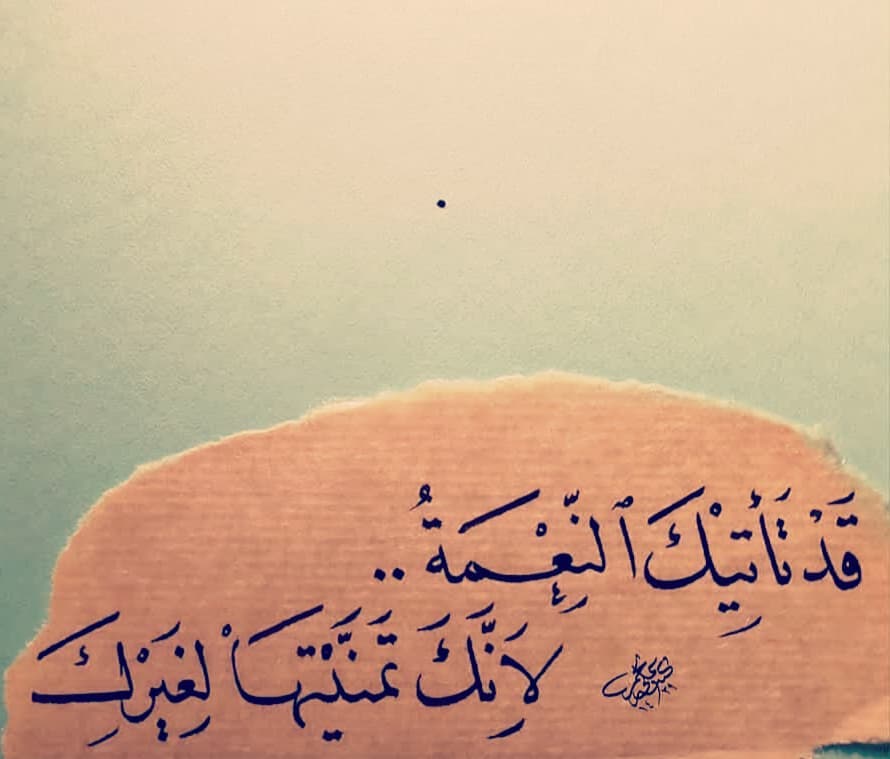 قَدْ تَأْتِيْكَ ٱلنِّعْمَةُ ..
لِأَنَّكَ تَمَنَّيْتَهَا لِغَيْرِكَ